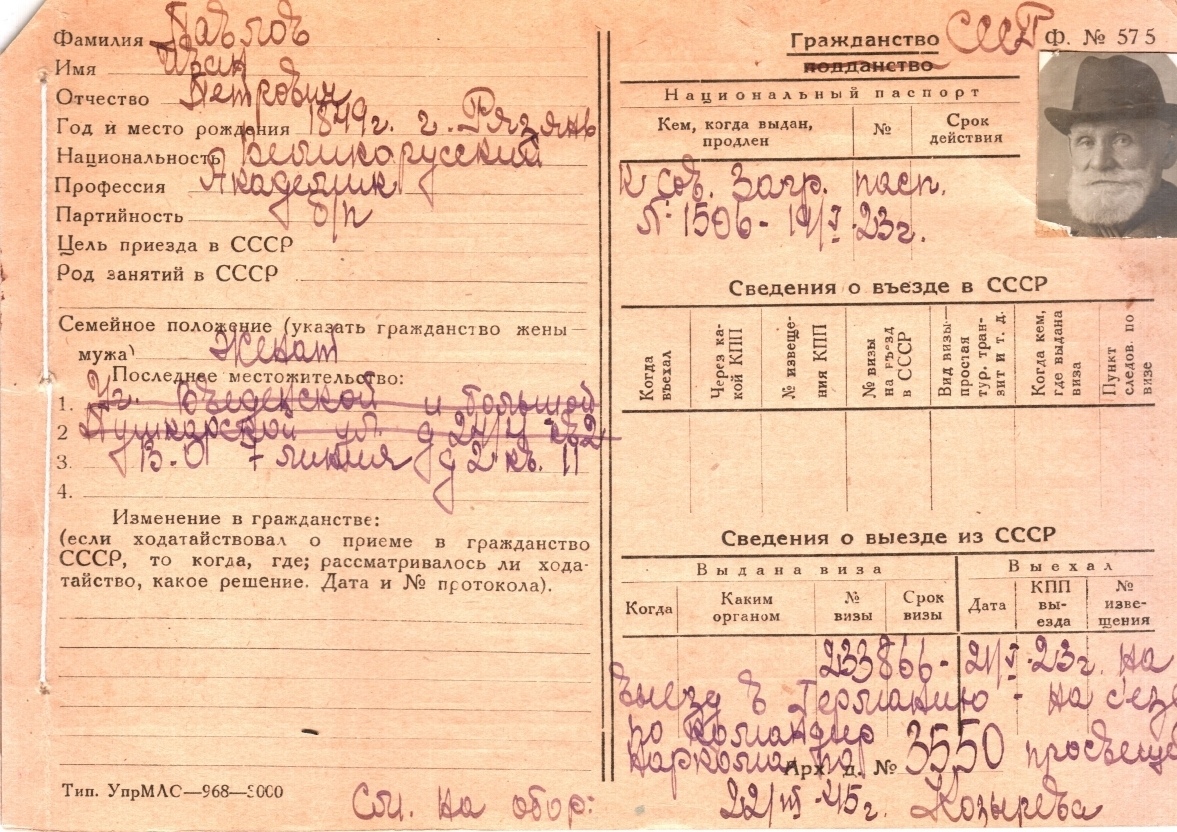 Фамилия Павлов
Имя Иван
Отчество Петрович
Год и место рождения 1849г. г. Рязань
Национальность великорусский
Профессия Академик
Партийность б/п
Цель приезда в СССР
Род занятий в СССР
Семейное положение (указать гражданство жены—
мужа) Женат
Последнее местожительство:
1. Уг. Введенской и большой
2 Пушкарской ул. д 24/ кв 2
3. В.О 7 линия д 2 кв. 11
4.
Изменение в гражданстве:
(если ходатайствовал о приеме в гражданство
СССР, то когда, где; рассматривалось ли хода-
тайство, какое решение. Дата и № протокола).
Тип. УпрМЛС—968—3000
См. на обор:
Гражданство СССР Ф. № 575
подданство
Национальный паспорт
Кем, когда выдан,
продлен
№
Срок
действия
К сов. Загр. пасп.
№ 1506 - 19/V 23г.
Сведения о въезде в СССР
Когда
въехал
Через ка-
кой КПП
№ извеще-
ния КПП
№ визы
на въезд
в СССР
Вид визы—
простая
тур. тран-
зит и т. д.
Когда кем,
где выдана
виза
Пункт
следов. по
визе
Сведения о выезде из СССР
Выдана виза
Выехал
Когда
Каким
органом
№
визы
Срок
визы
Дата
КПП
вы-
езда
№
изве-
щения
233866 - 21/V -23г. на
выезд в Германию - на с'езд
по командир
наркомата просвеще
Арх. д. № 3550
22/III -45г. Козырева